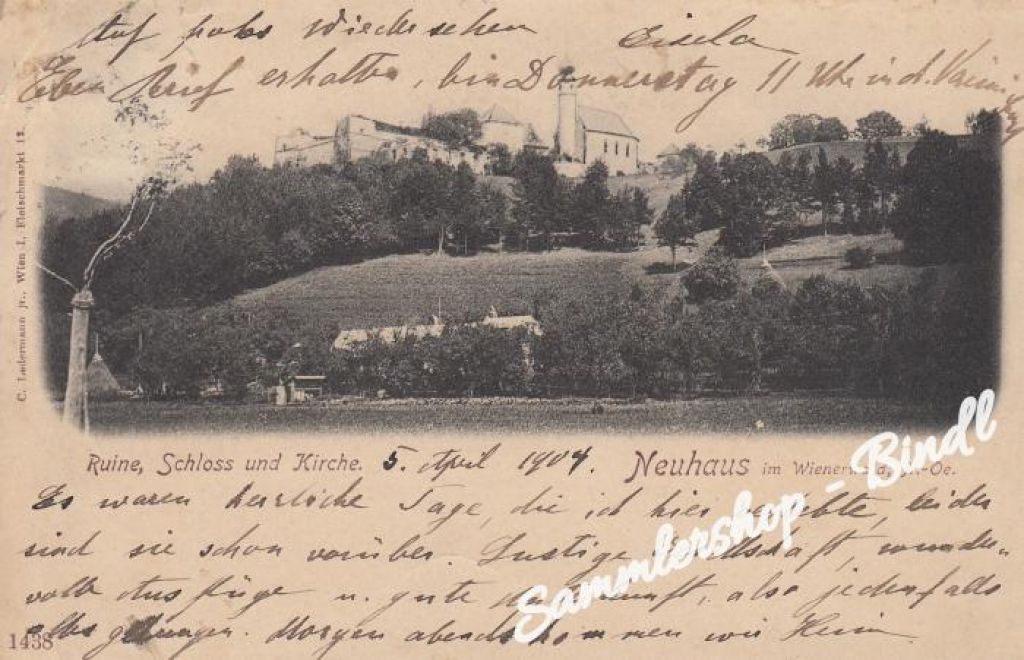 Auf frohes wiedersehen Gisela
Eben Brief erhalten, bin Donnerstag 11 Uhr in d.
C. Ledermann jr., Wien I., Fleischmarkt 12.
Ruine, Schloss und Kirche. 5. April 1904. Neuhaus im Wienerwald, N.-Oe.
Es waren herrliche Tage, die ich hier leider
sind sie schon vorüber. Lustige wunder-
volle Ausflüge u. gute also jedenfalls
alles gelungen. Morgen abends kommen wir Heim
1438
Sammlershop - Bindl